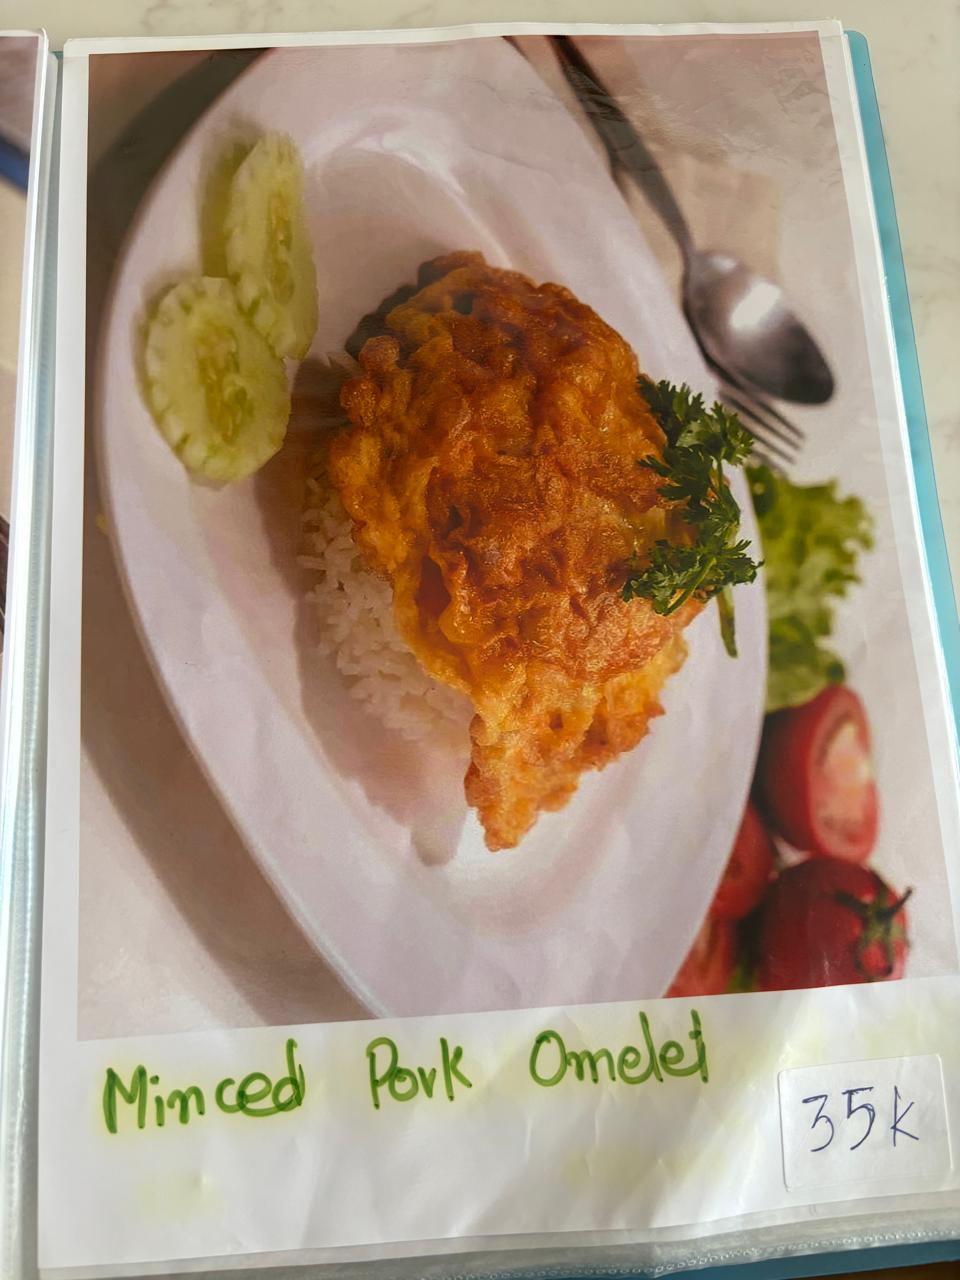 Minced Pork Omelet
35k